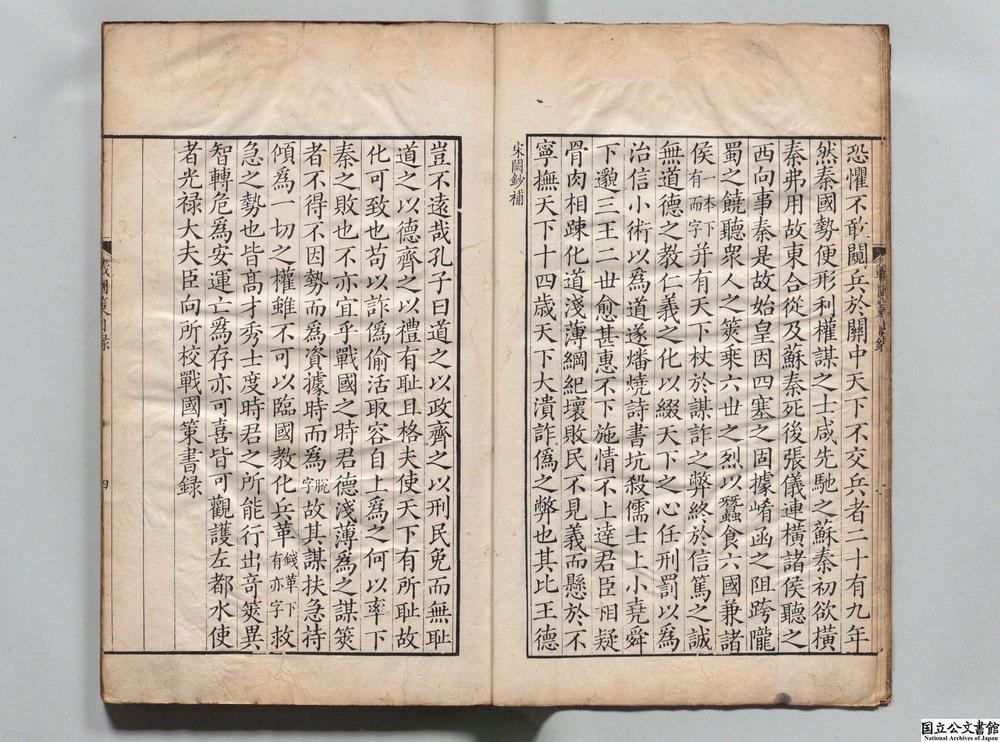 恐懼不敢闚兵於關中天下不交兵者二十有九年
然秦國勢便形利權謀之士咸先馳之蘇秦初欲橫
秦弗用故東合從及蘇秦死後張儀連橫諸侯聽之
西向事秦是故始皇因四塞之固據崤函之阻跨隴
蜀之饒聽衆人之筴乗六世之烈以蠶食六國兼諸
侯一本下有而字并有天下杖於謀詐之弊終於信篤之誠
無道德之教仁義之化以綴天下之心任刑罰以爲
治信小術以爲道遂燔燒詩書坑殺儒士上小堯舜
下邈三王二世愈甚惠不下施情不上達君臣相疑
骨肉相踈化道淺薄綱紀壞敗民不見義而懸於不
寧撫天下十四歲天下大潰詐僞之弊也其比王德
宋闕鈔補
豈不遠哉孔子曰道之以政齊之以刑民免而無恥
道之以德齊之以禮有恥且格夫使天下有所恥故
化可致也苟以詐僞偷活取容自上爲之何以率下
秦之敗也不亦宜乎戰國之時君德淺薄爲之謀筴
者不得不因勢而爲資據時而爲脫字故其謀扶急持
傾爲一切之權雖不可以臨國教化兵革錢革下有亦字救
急之勢也皆髙才秀士度時君之所能行出竒筴異
智轉危爲安運亡爲存亦可喜皆可觀護左都水使
者光禄大夫臣向所校戰國策書録
戰國策目録
四
国立公文書館
National Archives of Japan